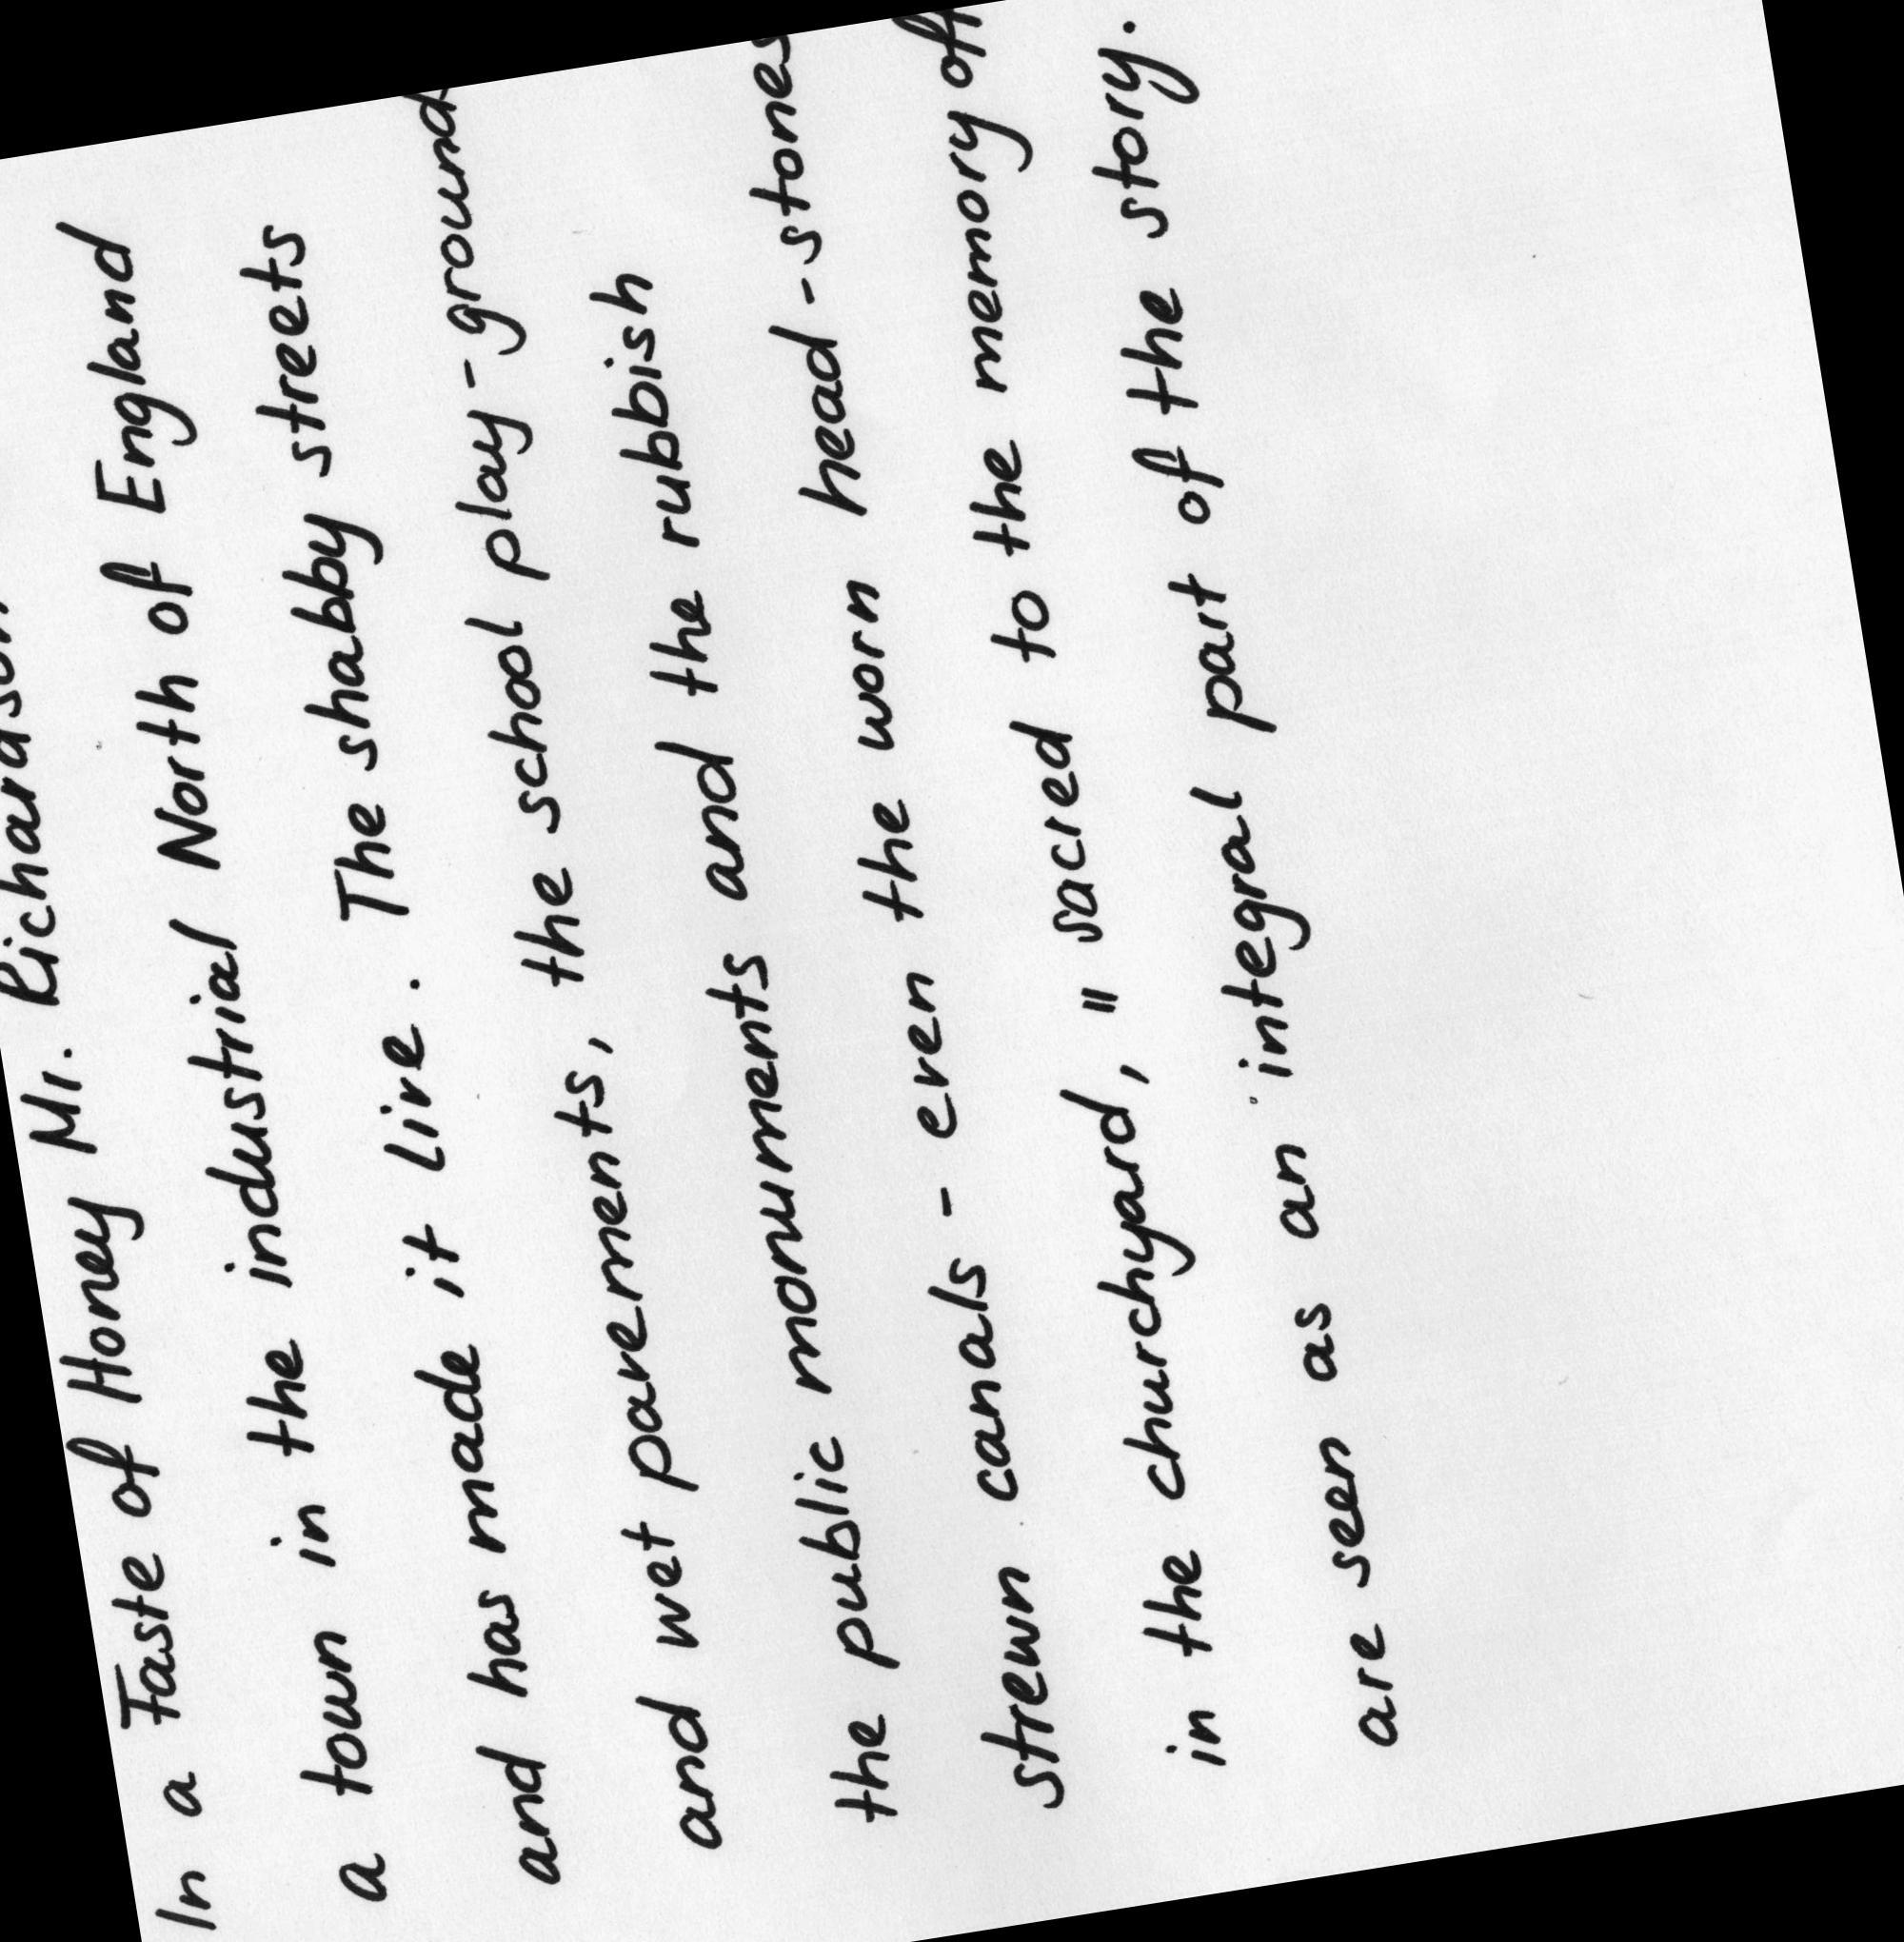 In a Taste of Honey Mr. Richardson
a town in the industrial North of England
and has made it live. The shabby streets
and wet pavements, the school play-ground
the public monuments and the rubbish
strewn canals - even the worn head-stones
in the churchyard, " sacred to the memory of
are seen as an integral part of the story.